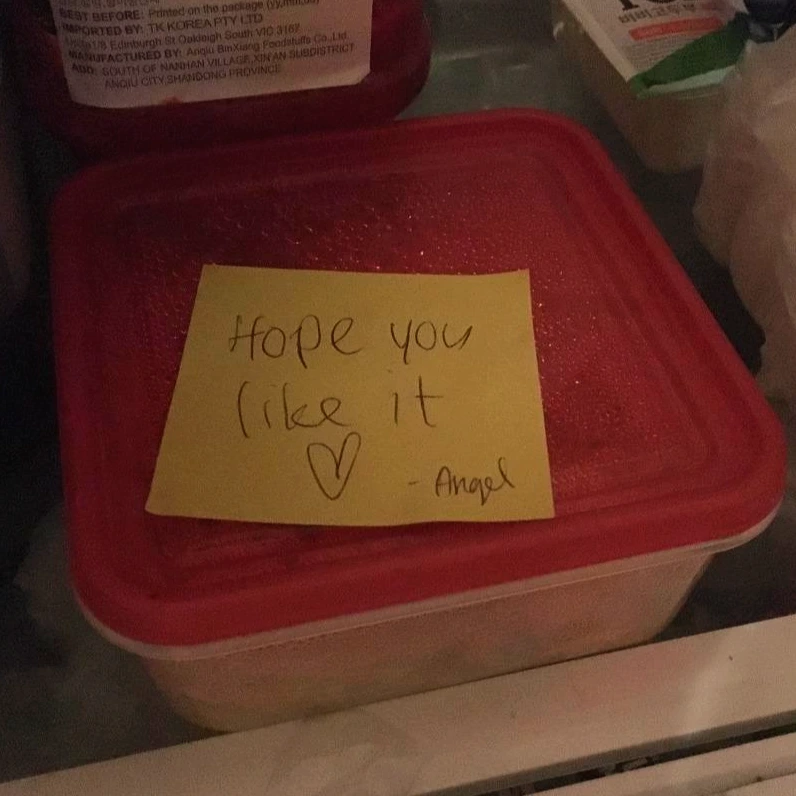 BEST BEFORE: Printed on the package
IMPORTED BY: TK KOREA PTY LTD
Edinburgh St Oakleigh South VIC 3167
MANUFACTURED BY: Anqiu BinXiang Foodstuffs Co.,Ltd.
ADD: SOUTH OF NANHAN VILLAGE,XIN'AN SUBDISTRICT
ANQIU CITY,SHANDONG PROVINCE
Hope you
like it
♡ - Angel